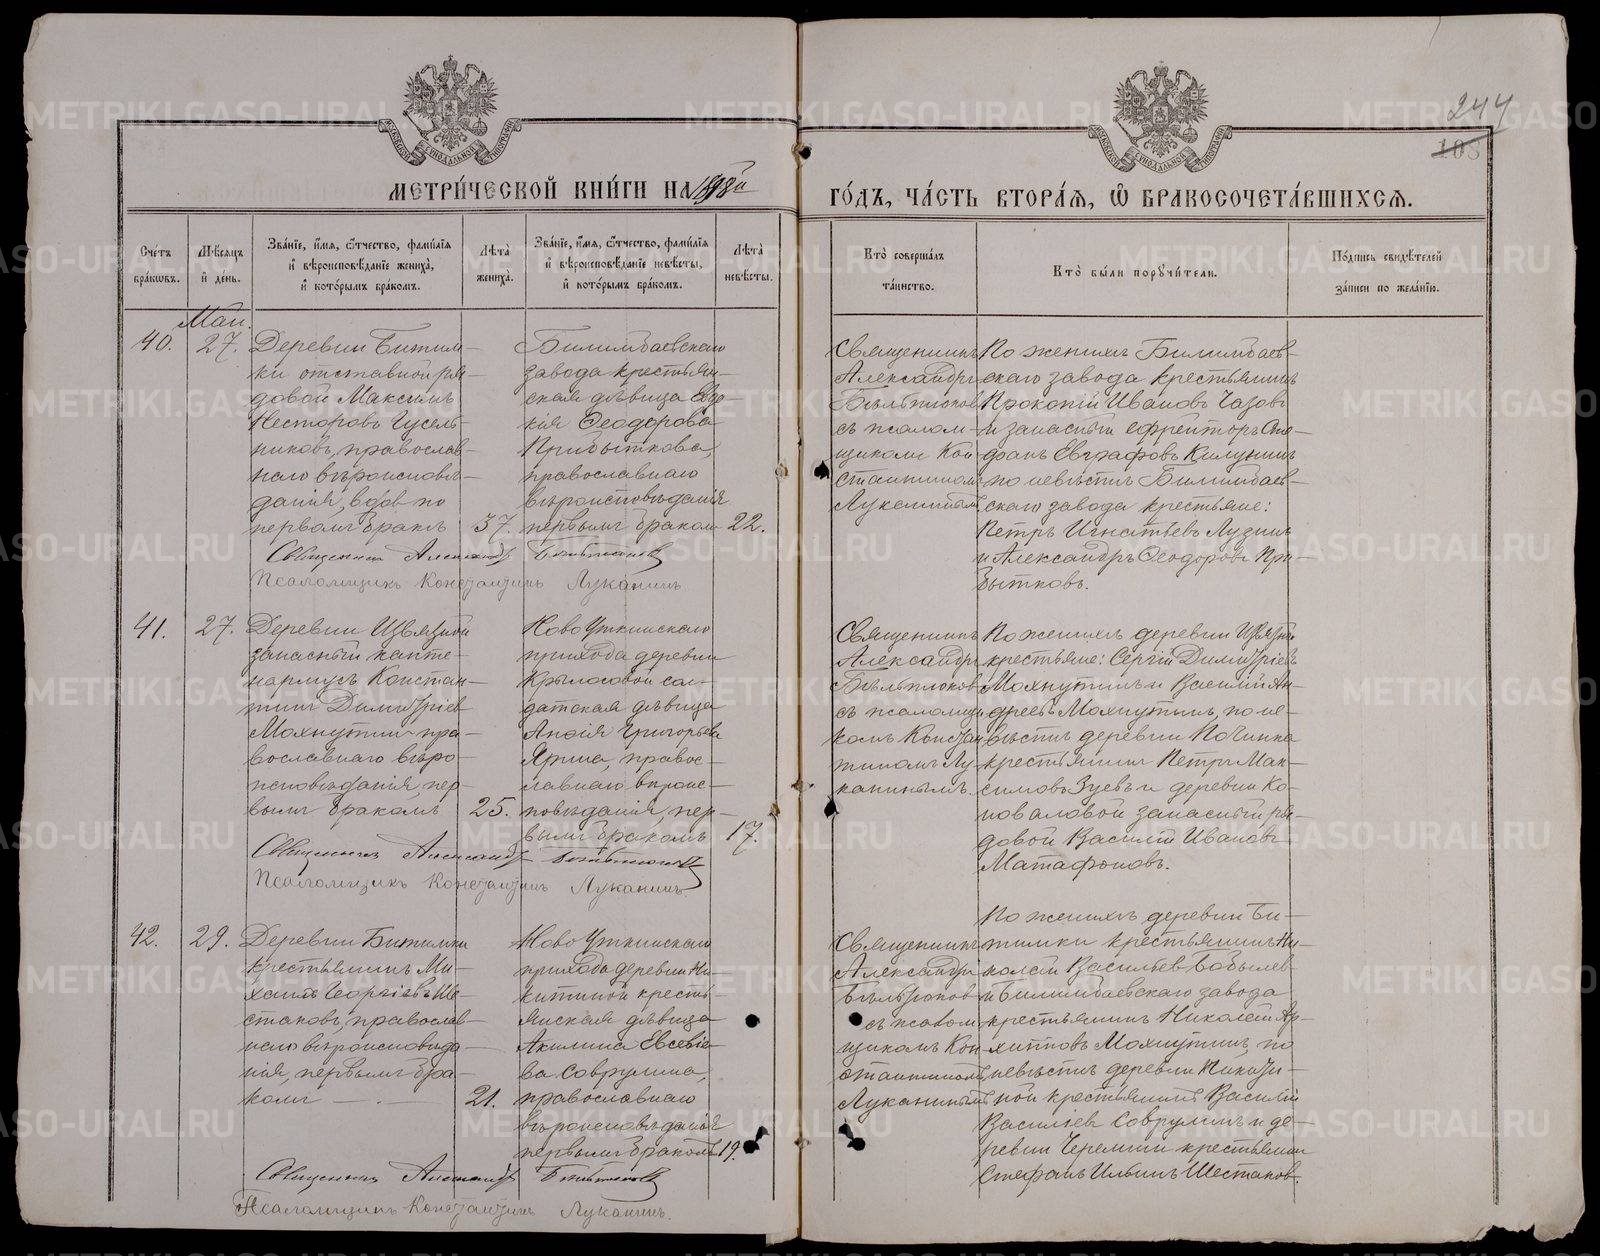 244
108
МОСКОВСКОЙ СУНОДАЛЬНОЙ ТИПОГРАФІИ
МОСКОВСКОЙ СУНОДАЛЬНОЙ ТИПОГРАФІИ
МЕТРИ́ЧЕСКОЙ КНИ́ГИ НА 1898й ГО́ДЪ, ЧА́СТЬ ВТОРА́Я, Ѡ БРАКОСОЧЕТА́ВШИХСЯ.
Сче́тъ бра́ковъ.
Мѣ́сяцъ и҆ де́нь.
Зва́нїе, и҆́мя, ѻ҆́тчество, фамил́їя и҆ вѣроисповѣ́данїе жениха̀, и҆ кото́рымъ бра́комъ.
Лѣ̑та̀ жениха̀.
Зва́нїе, и҆́мя, ѻ҆́тчество, фами́лїя и҆ вѣроисповѣ́данїе невѣ́сты, и҆ кото́рымъ бра́комъ.
Лѣ̑та̀ невѣ́сты.
Кто̀ соверша́лъ та́инство.
Кто̀ бы́ли порꙋчи́тели.
По́дпись свидѣ́телей за́писи по жела́нїю.
Май.
40.
27.
Деревни Битим-
ки отставной ря-
довой Максимъ
Несторовъ Гусель-
никовъ, православ-
наго вѣроисповѣ-
данія, вдов по
первомъ бракѣ
37.
Билимбаевскаго
завода крестьян-
ская дѣвица Евдо-
кія Ѳеодорова
Прибыткова,
православнаго
вѣроисповѣданія
первымъ бракомъ
22.
Священникъ
Александръ
Бѣльтюков
съ псалом-
щикомъ Кон
стантином
Луканиным
По женихѣ Билимбаев-
скаго завода крестьянинъ
Прокопій Ивановъ Чазовъ
и запасный ефрейторъ
Евграфовъ
по невѣстѣ Билимбаев-
скаго завода крестьяне:
Петръ Игнатьевъ Лузинъ
и Александръ Ѳеодоровъ При-
бытковъ.
Священникъ Александръ Бѣльтюковъ
Псаломщикъ Константинъ Луканинъ
41.
27.
Деревни Извязной
запасный капте-
нармусъ Констан-
тинъ Димитріев
Махнутин пра-
вославнаго вѣро-
исповѣданія, пер-
вымъ бракомъ
25.
Ново Уткинскаго
прихода деревни
Крыласовой сол-
датская дѣвица
Анѳія Григорьева
Ярина, правос-
лавнаго вѣроис-
повѣданія, пер-
вымъ бракомъ
17.
Священникъ
Александръ
Бѣльтюков
съ псаломщи
комъ Констан
тиномъ Лу-
канинымъ.
По женихѣ деревни Извязной
крестьяне: Сергій Димитріевъ
Махнутинъ и Василій Ан-
дреевъ Махнутинъ, по не-
вѣстѣ деревни Починка
крестьянинъ Петръ Мак-
симовъ Зуевъ и деревни Ко-
новаловой запасный ря-
довой Василій Ивановъ
Матафоновъ.
Священникъ Александръ Бѣльтюковъ
Псаломщикъ Константинъ Луканинъ.
42.
29.
Деревни Битимки
крестьянинъ Ми-
хаилъ Георгіевъ Ше-
стаковъ, православ-
наго вѣроисповѣда-
нія, первымъ бра-
комъ
21.
Ново Уткинскаго
прихода деревни Ни-
китиной кресть-
янская дѣвица
Акилина Евсевіе-
ва Соврулина,
православнаго
вѣроисповѣданія
первымъ бракомъ
19.
Священникъ
Александръ
Бѣльтюков
съ псалом
щикомъ Кон
стантиномъ
Луканинымъ
По женихѣ деревни Би-
тимки крестьянинъ Ни-
колай Васильевъ Бобылев
и Билимбаевскаго завода
крестьянинъ Николай Ар-
хиповъ Махнутинъ, по
невѣстѣ деревни Никити-
ной крестьянинъ Василій
Васильев Соврулинъ и де-
ревни Черемши крестьянин
Стефанъ Ильинъ Шестаков.
Священникъ Александръ Бѣльтюковъ
Псаломщикъ Константинъ Луканинъ.
METRIKI.GASO-URAL.RU